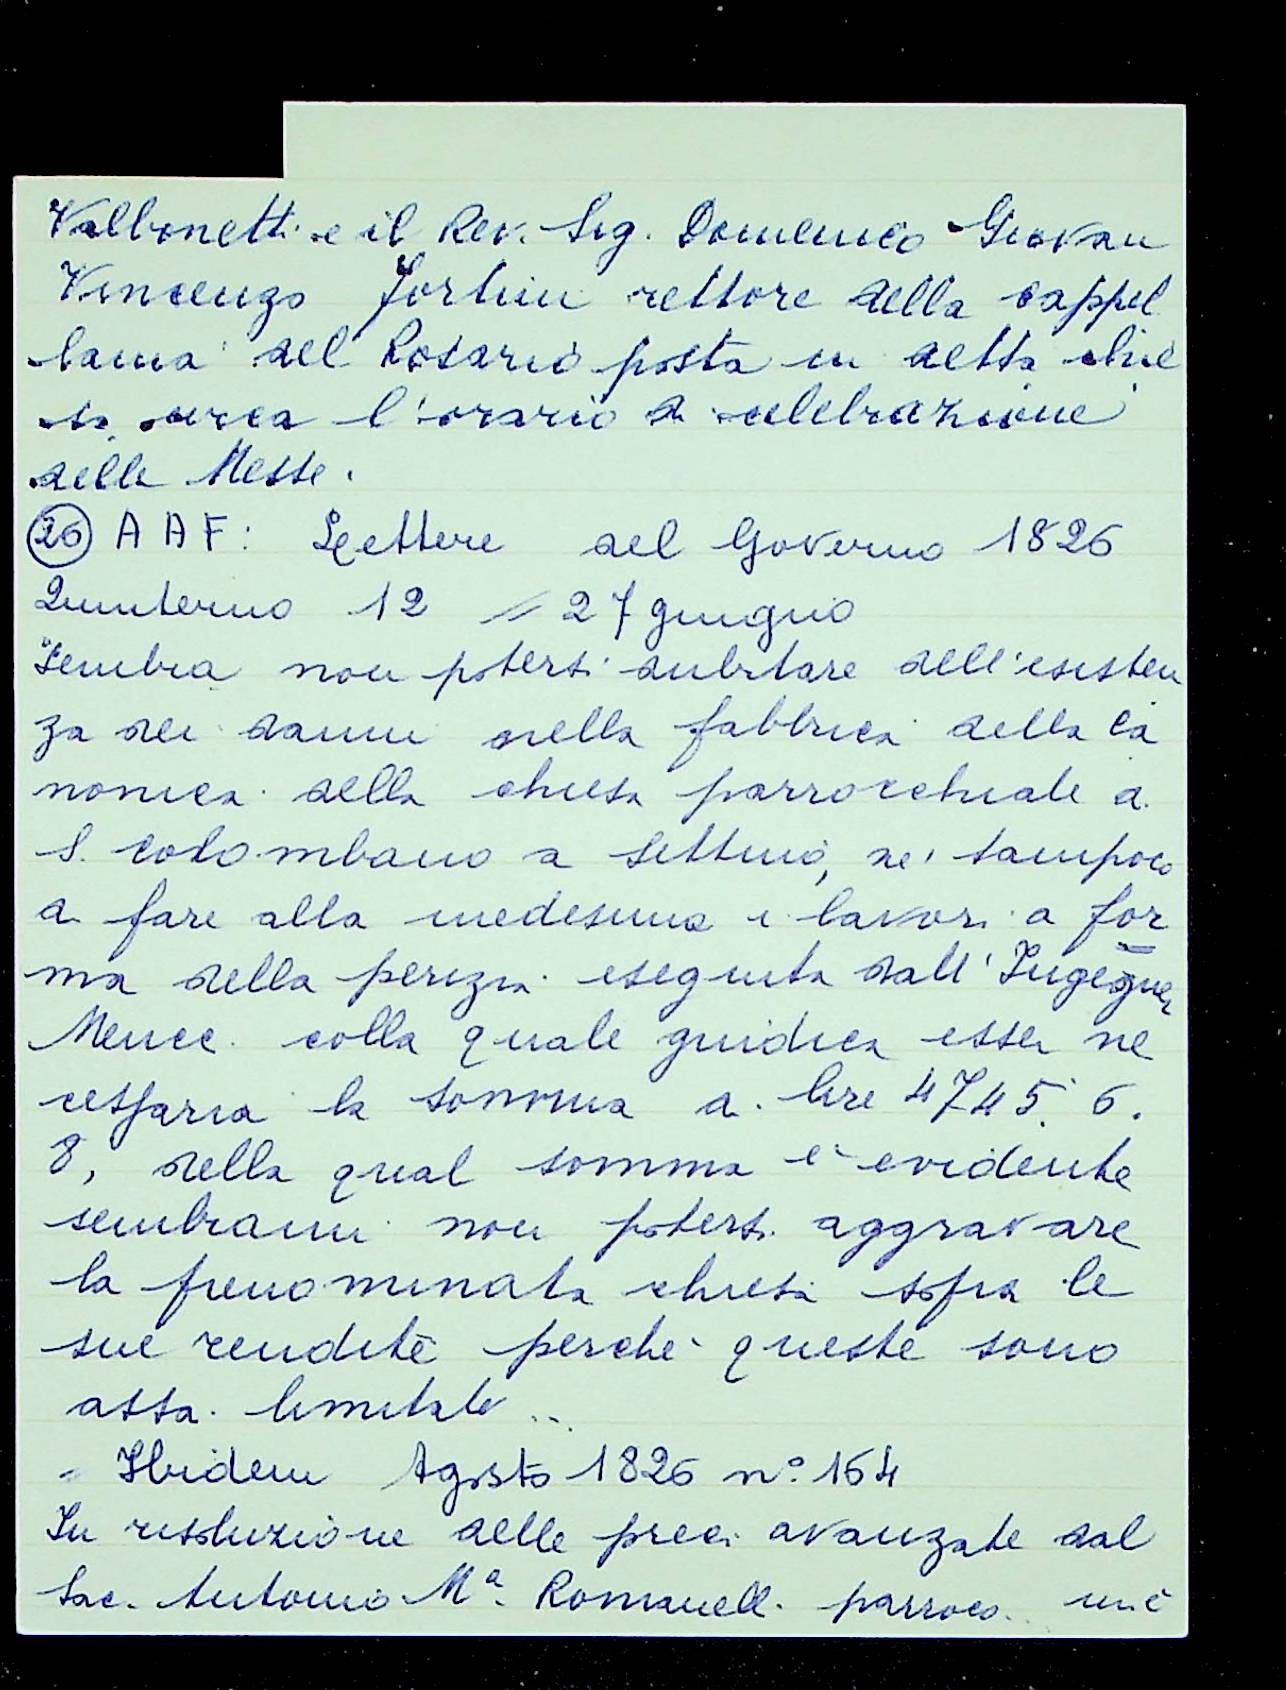 Valbonetti e il Rev. Sig. Domenico Giovan
Vincenzo Fortini rettore della cappel
lania del Rosario posta in detta chie
sa circa l'orario di celebrazione
delle Messe.
26 A A F: Lettere del Governo 1826
Quinterno 12 // 27 giugno
"Sembra non potersi dubitare dell'esisten
za dei danni nella fabbrica della ca
nonica della chiesa parrocchiale di
S. Colombano a Settimo, né tampoco
di fare alla medesima i lavori a for
ma della perizia eseguita dall'Ingegner
Meucci colla quale giudica esser ne
cessaria la somma di lire 4745. 6.
8, della qual somma è evidente
sembrami non potersi aggravare
la prenominata chiesa sopra le
sue rendite perché queste sono
assai limitate ..
" Ibidem Agosto 1826 n° 164
In risoluzione delle preci avanzate dal
Sac. Antonio Mª. Romanelli parroco